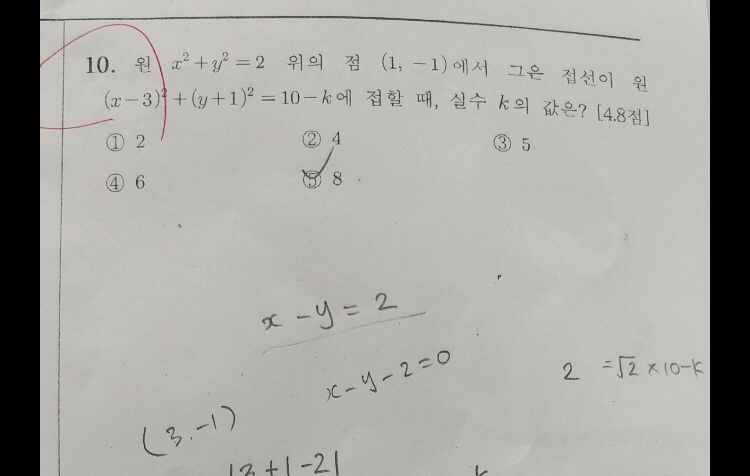 10. 원 x²+y²=2 위의 점 (1, −1)에서 그은 접선이 원
(x−3)²+(y+1)²=10−k에 접할 때, 실수 k의 값은? [4.8점]
① 2 ② 4 ③ 5
④ 6 ⑤ 8
x−y=2
x−y−2=0
2 =√2×10−k
(3.−1)
|3+1−2|
k